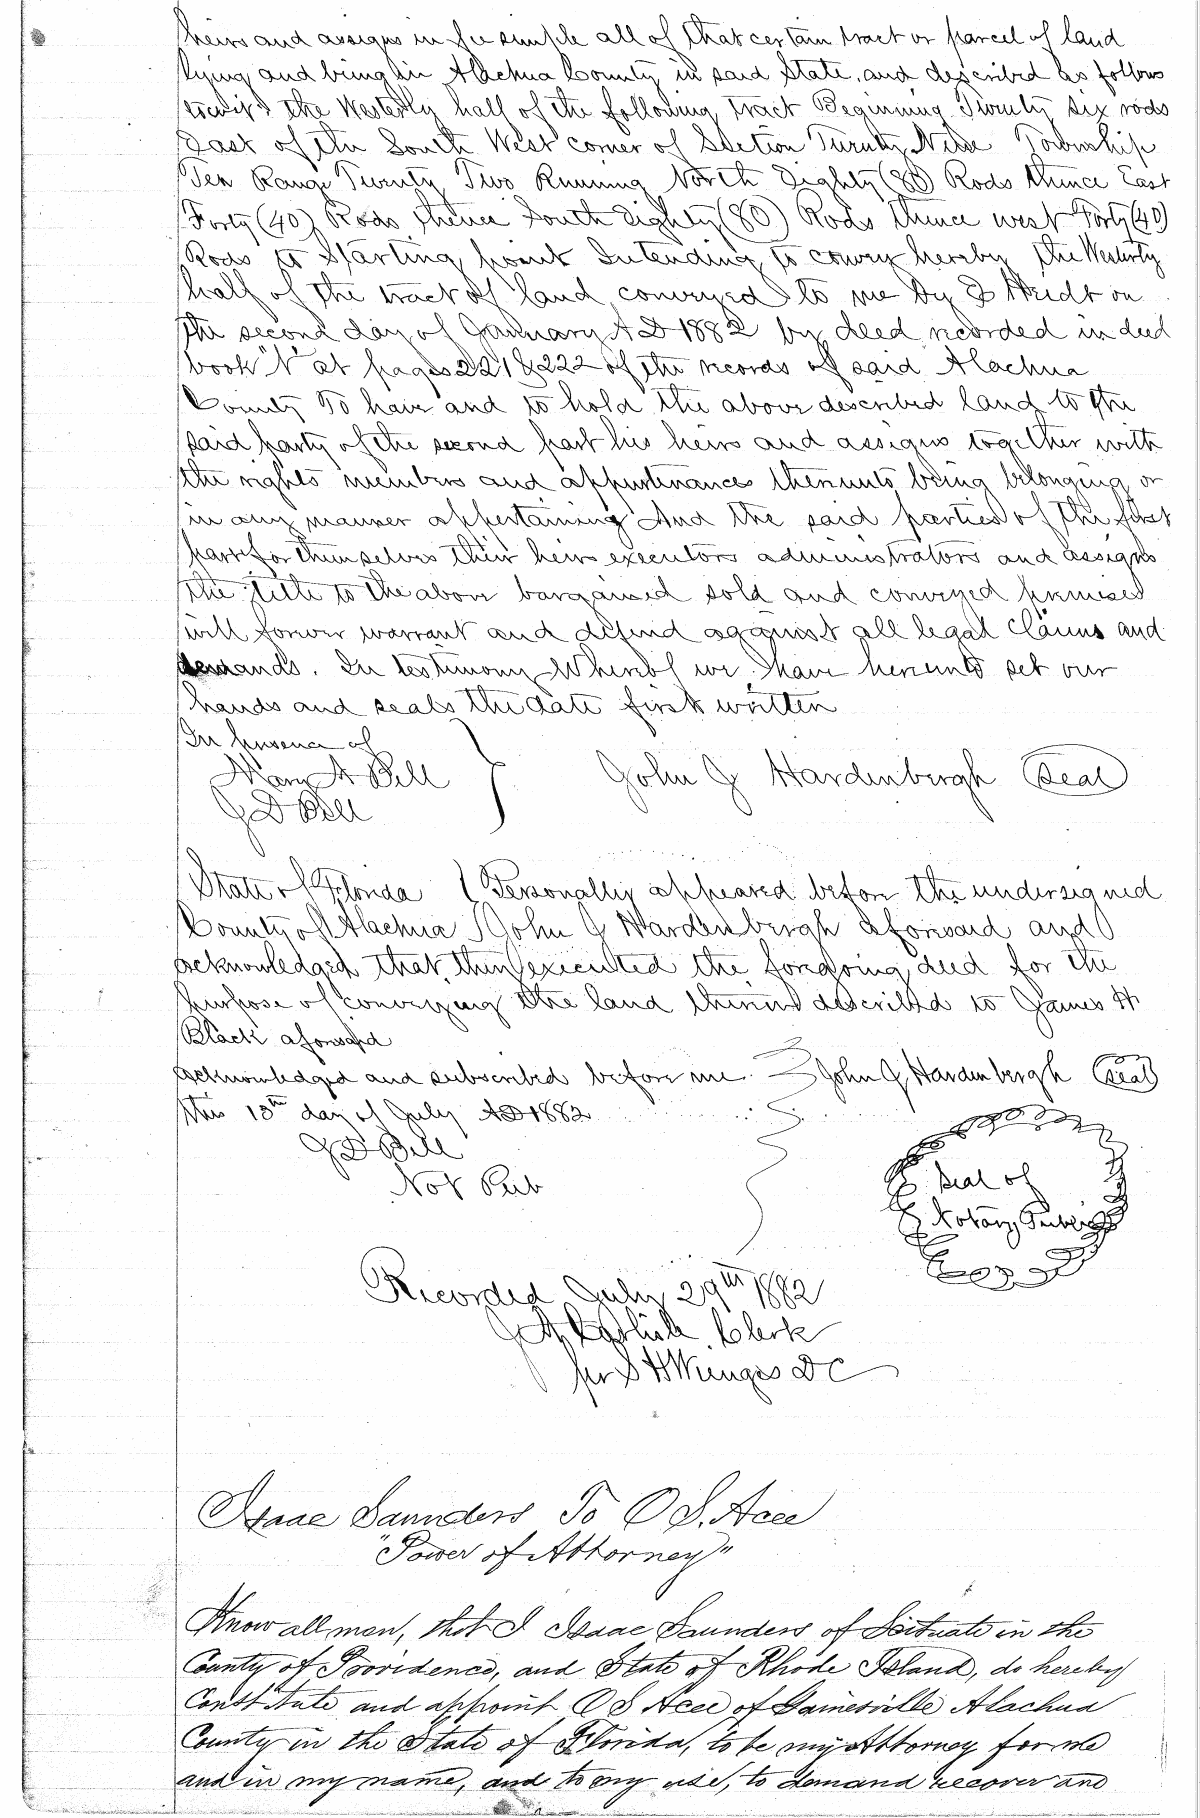 heirs and assigns in fee simple all of that certain tract or parcel of land
lying and being in Alachua County in said State, and described as follows
to wit: the Westerly half of the following tract Beginning Twenty six rods
East of the South West corner of Section Twenty Nine Township
Ten Range Twenty Two Running North Eighty (80) Rods thence East
Forty (40) Rods thence South Eighty (80) Rods thence west Forty (40)
Rods to Starting point Intending to convey hereby the Westerly
half of the tract of land conveyed to me by on
the second day of January AD 1882 by deed recorded in deed
book at pages 221 & 222 of the records of said Alachua
County To have and to hold the above described land to the
said party of the second part his heirs and assigns together with
the rights members and appurtenances thereunto being belonging or
in any manner appertaining And the said parties of the first
part for themselves their heirs executors administrators and assigns
the title to the above bargained sold and conveyed premises
will forever warrant and defend against all legal claims and
demands. In testimony Whereof we have hereunto set our
hands and seals the date first written
In presence of
Mary A Bell
J D Bell
John J Hardenbergh Seal
State of Florida Personally appeared before the undersigned
County of Alachua John J Hardenbergh aforesaid and
acknowledged that they executed the foregoing deed for the
purpose of conveying the land therein described to James H
Black aforesaid
Acknowledged and subscribed before me John J Hardenbergh Seal
this 15th day of July AD 1882
J D Bell
Not Pub
Seal of
Notary Public
Recorded July 29th 1882
J A Carlisle Clerk
per S H Wienges DC
Isaac Saunders To O S. Acee
"Power of Attorney"
Know all men, that I Isaac Saunders of Scituate in the
County of Providence, and State of Rhode Island, do hereby
Constitute and appoint O S Acee of Gainesville Alachua
County in the State of Florida, to be my Attorney for me
and in my name, and to my use, to demand recover and